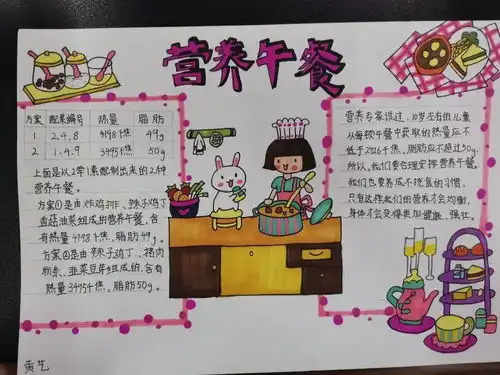 营养午餐
方案 配菜编号 热量 脂肪
1 2.4.8 4198千焦 49g
2 1.4.9 3495千焦 50g
上面是以2荤1素配制出来的2种
营养午餐。
方案①是由炸鸡排、辣子鸡丁
香菇油菜组成的营养午餐,含
有热量4198千焦,脂肪49g。
方案②是由辣子鸡丁、猪肉
粉条、韭菜豆芽组成的,含有
热量3495千焦,脂肪50g。
营养专家说过,10岁左右的儿童
从每顿午餐中获取的热量应不
低于2926千焦,脂肪应不超过50g。
所以,我们要合理安排营养午餐。
我们也要养成不挑食的习惯,
只有这样我们的营养才会均衡,
身体才会变得更加健康、强壮。
黄艺